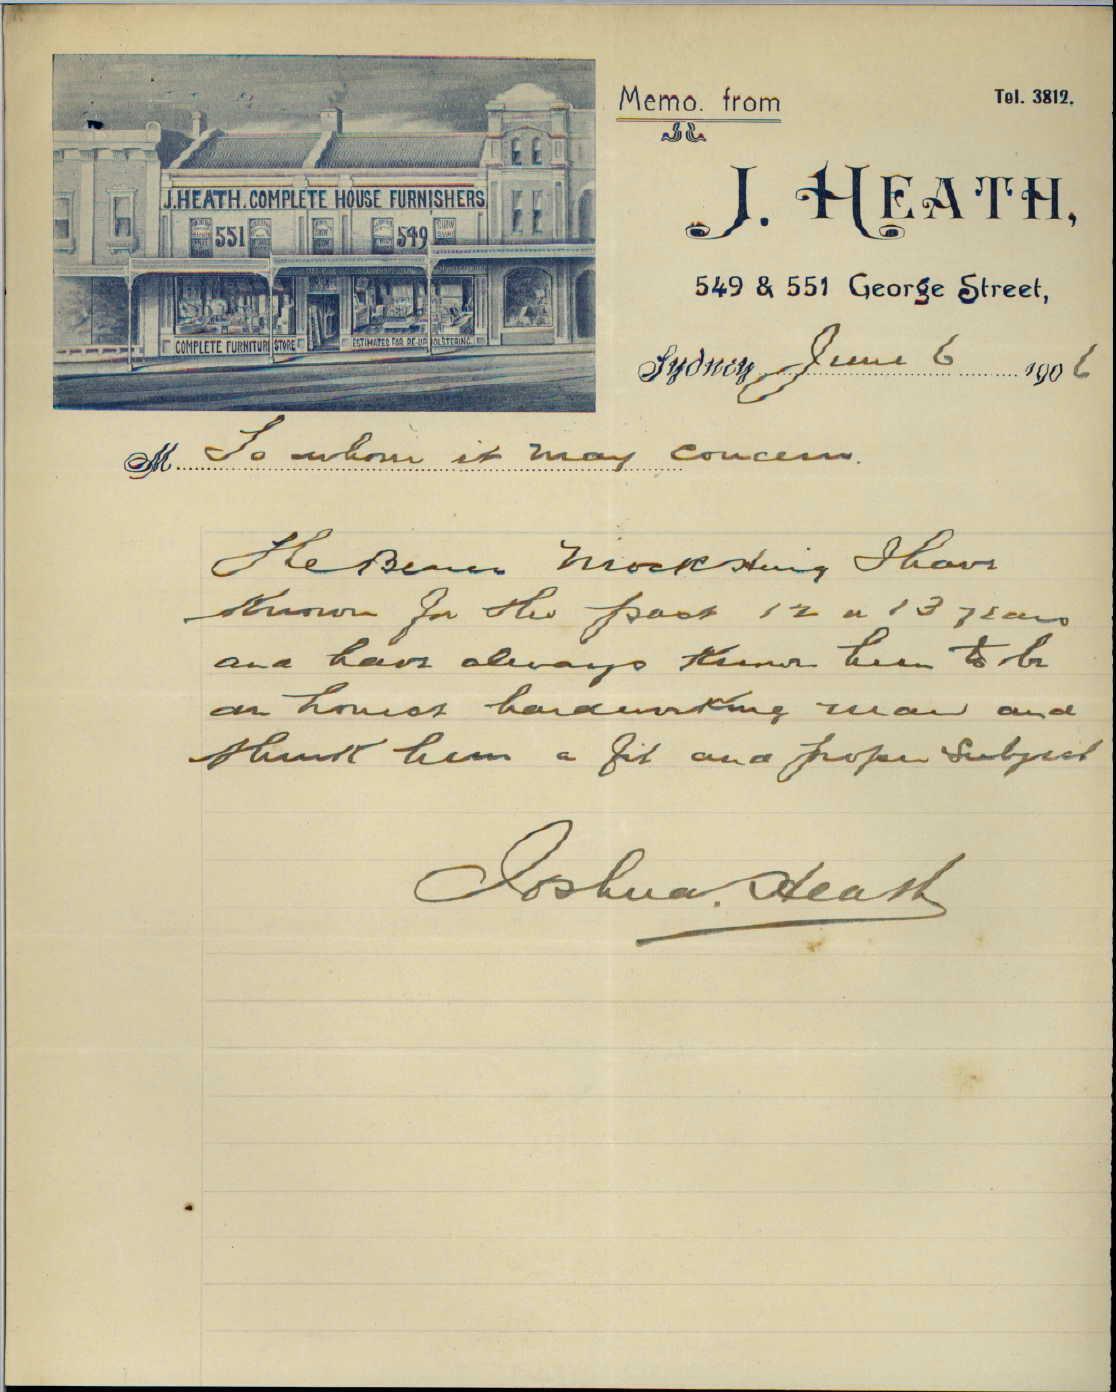 Memo. from
Tel. 3812.
J. HEATH,
549 & 551 George Street,
Sydney June 6 1906
J. HEATH. COMPLETE HOUSE FURNISHERS
551
549
COMPLETE FURNITURE STORE
ESTIMATES FOR RE-UPHOLSTERING
M To whom it may concern.
The Bearer Mock Hing I have
known for the past 12 or 13 years
and have always known him to be
an honest hardworking man and
think him a fit and proper subject
Joshua. Heath